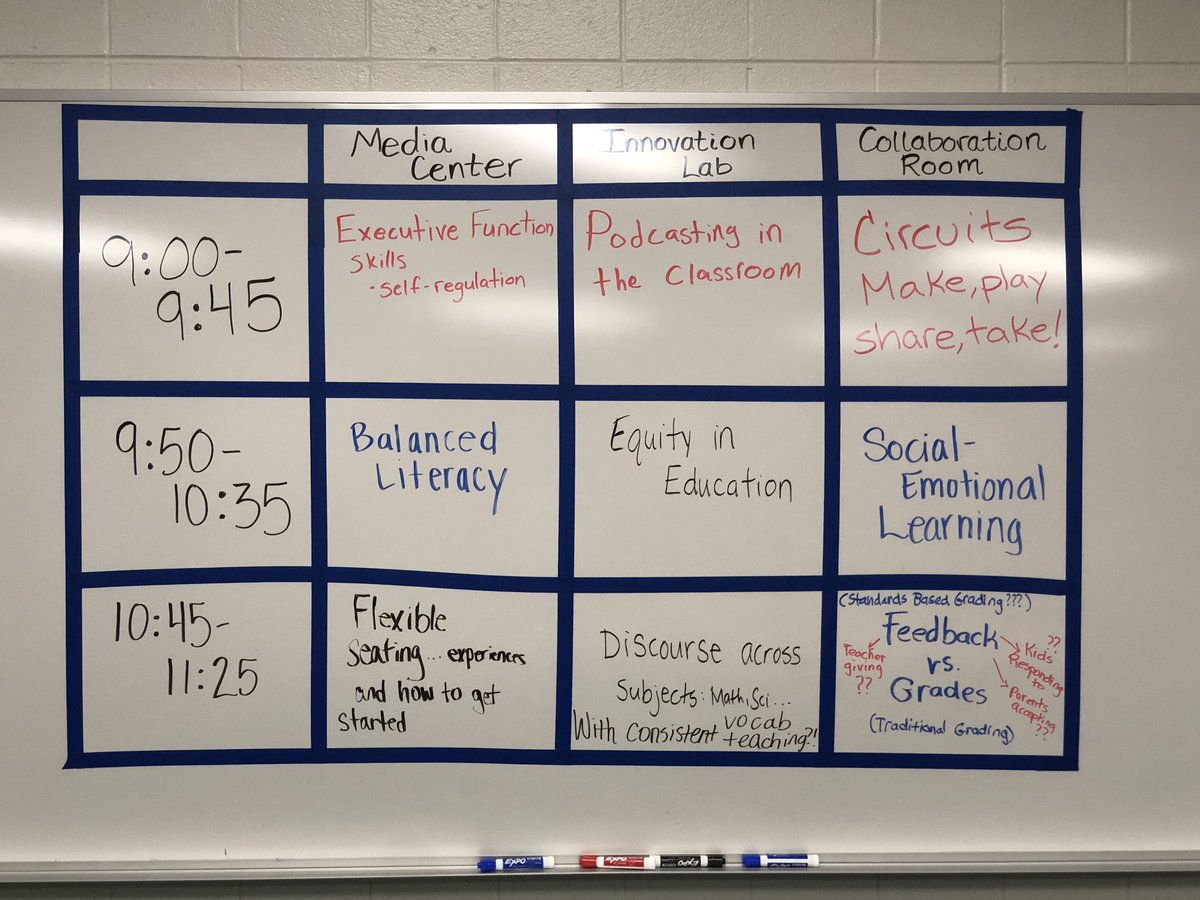 Media
Center
Innovation
Lab
Collaboration
Room
9:00-
9:45
Executive Function
skills
· self-regulation
Podcasting in
the Classroom
Circuits
Make, play
share, take!
9:50-
10:35
Balanced
Literacy
Equity in
Education
Social-
Emotional
Learning
10:45-
11:25
Flexible
Seating... experiences
and how to get
started
Discourse across
Subjects: Math, Sci...
With consistent vocab
teaching?!
(Standards Based Grading???)
Feedback
vs.
Grades
(Traditional Grading)
Teacher
giving
??
??
Kids
Responding
to
Parents
accepting
??
EXPO
EXPO
EXPO